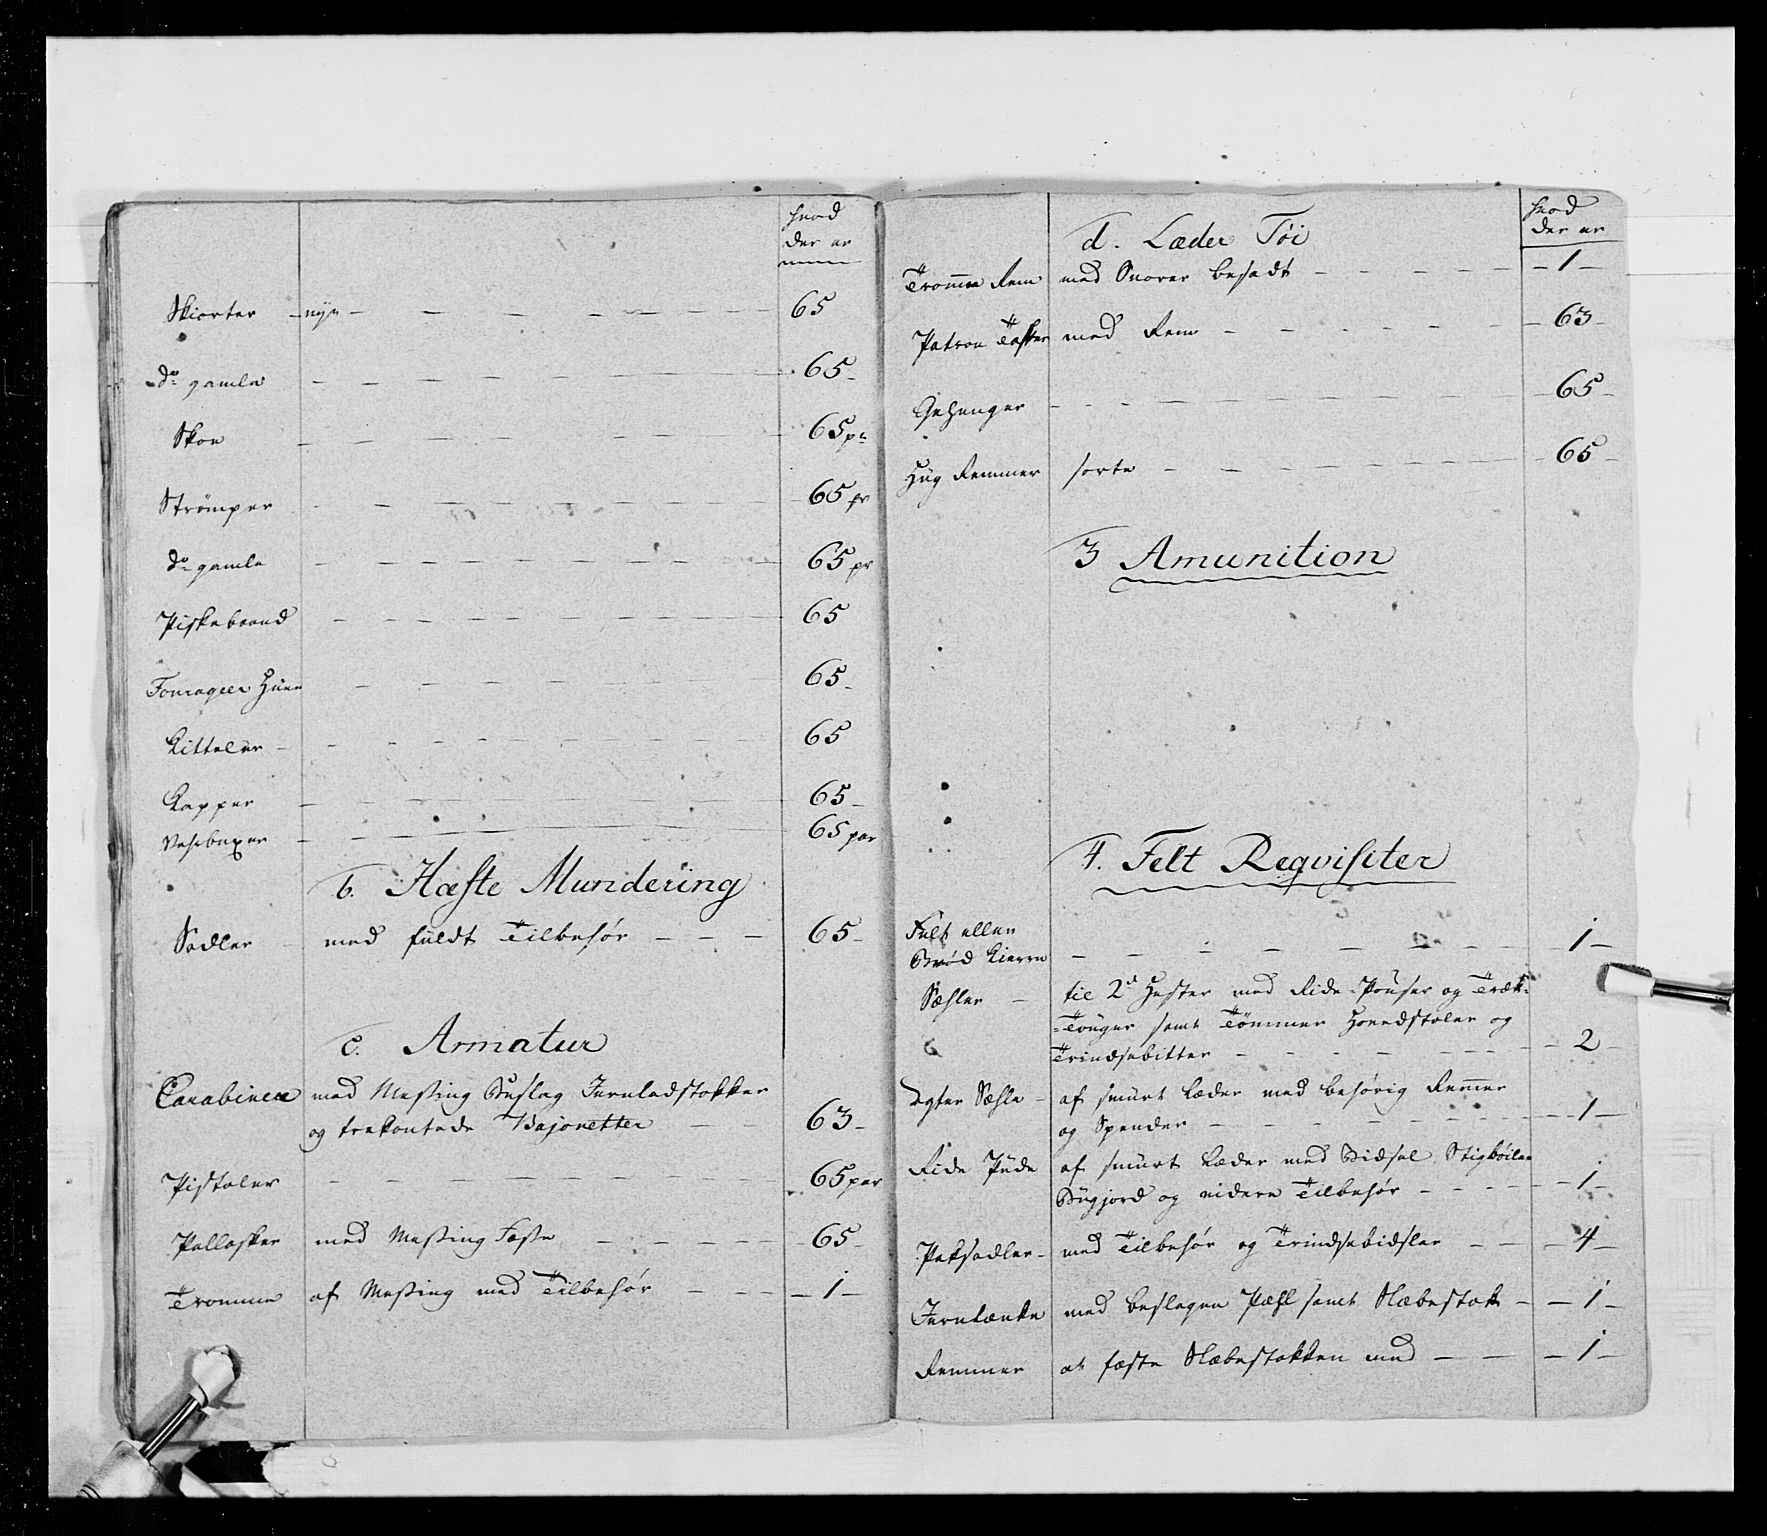 hvad
der er
Skiorter nye 65
do gamle 65
Skoe 65 pr
Strømper 65 pr
do gamle 65 pr
Piskebaand 65
Fourageer Huer 65
Kitteler 65
Kapper 65
65 par
b. Hæste Mundering
Sadler med fuldt Tilbehør 65
c. Armatur
Carabiner med Messing Beslag Jernladstokker
og trekantede Bajonetter 63
Pistoler 65 par
Pallasker med Messing Fæste 65
Tromme af Messing med Tilbehør 1
hvad
der er
d. Læder Tøi
Tromme Rem med Snorer besadt 1
Patron Tasker med Rem 63
Gehenger 65
Hug Remmer sorte 65
3 Amunition
4. Felt Reqvisiter
Felt eller
Brød Kierre 1
Sæhler til 2de Hester med Ride-Pouser og Træk-
Touger samt Tømmer Hovedstoler og
Trindsebitter 2
Sæhle af smurt Læder med behørig Remmer
og Spender 1
Ride Püde af smurt Læder med Bidsel Stigbøiler
Bugjord og videre Tilbehør 1
Paksadler med Tilbehør og Trindsebidsler 4
Jernlænke med beslagen Pæhl samt Slæbestok 1
Remmer at fæste Slæbestokken med 1